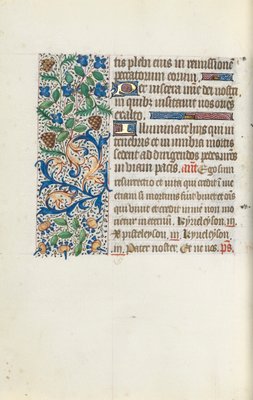 tis plebi eius in remissione
peccatorum eorum
Per viscera mie dei nostri
in quib; visitavit nos oriēs
ex alto
Illuminare hiis qui in
tenebris et in umbra mortis
sedent ad dirigendos pedes nr̄os
in viam pacis. añt Ego sum
resurrectio et vita qui credit ī me
etiam si mortuus fuit vivet et om̄s
qui vivit et credit in me non mo
rietur in eternū. Kyrieleyson. iii.
Xpisteleyson. iii. Kyrieleyson.
iii. Pater noster. Et ne nos. ps̄